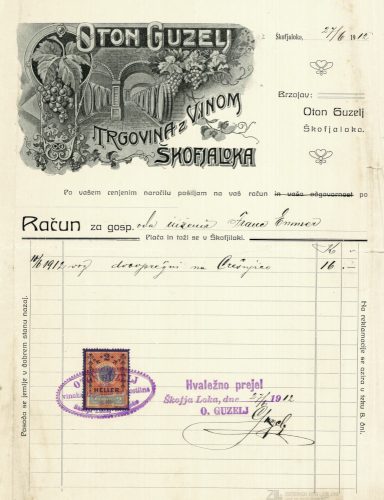 OTON GUZELJ
TRGOVINA Z VINOM
ŠKOFJALOKA
Škofjaloka, 27/6 1912
Brzojav:
Oton Guzelj
Škofjaloka.
Po vašem cenjenim naročilu pošiljam na vaš račun in vašo odgovarnost po
Račun za gosp. Franc
Plača in toži se v Škofjiloki.
K
1912 voz dvovprežni na 16 –
Posoda se jemlje v dobrem stanu nazaj.
Na reklamacije se ozira v teku 8. dni.
2
HELLER
O. GUZELJ
Hvaležno prejel
Škofja Loka, dne 27/6 1912
O. GUZELJ
Guzelj